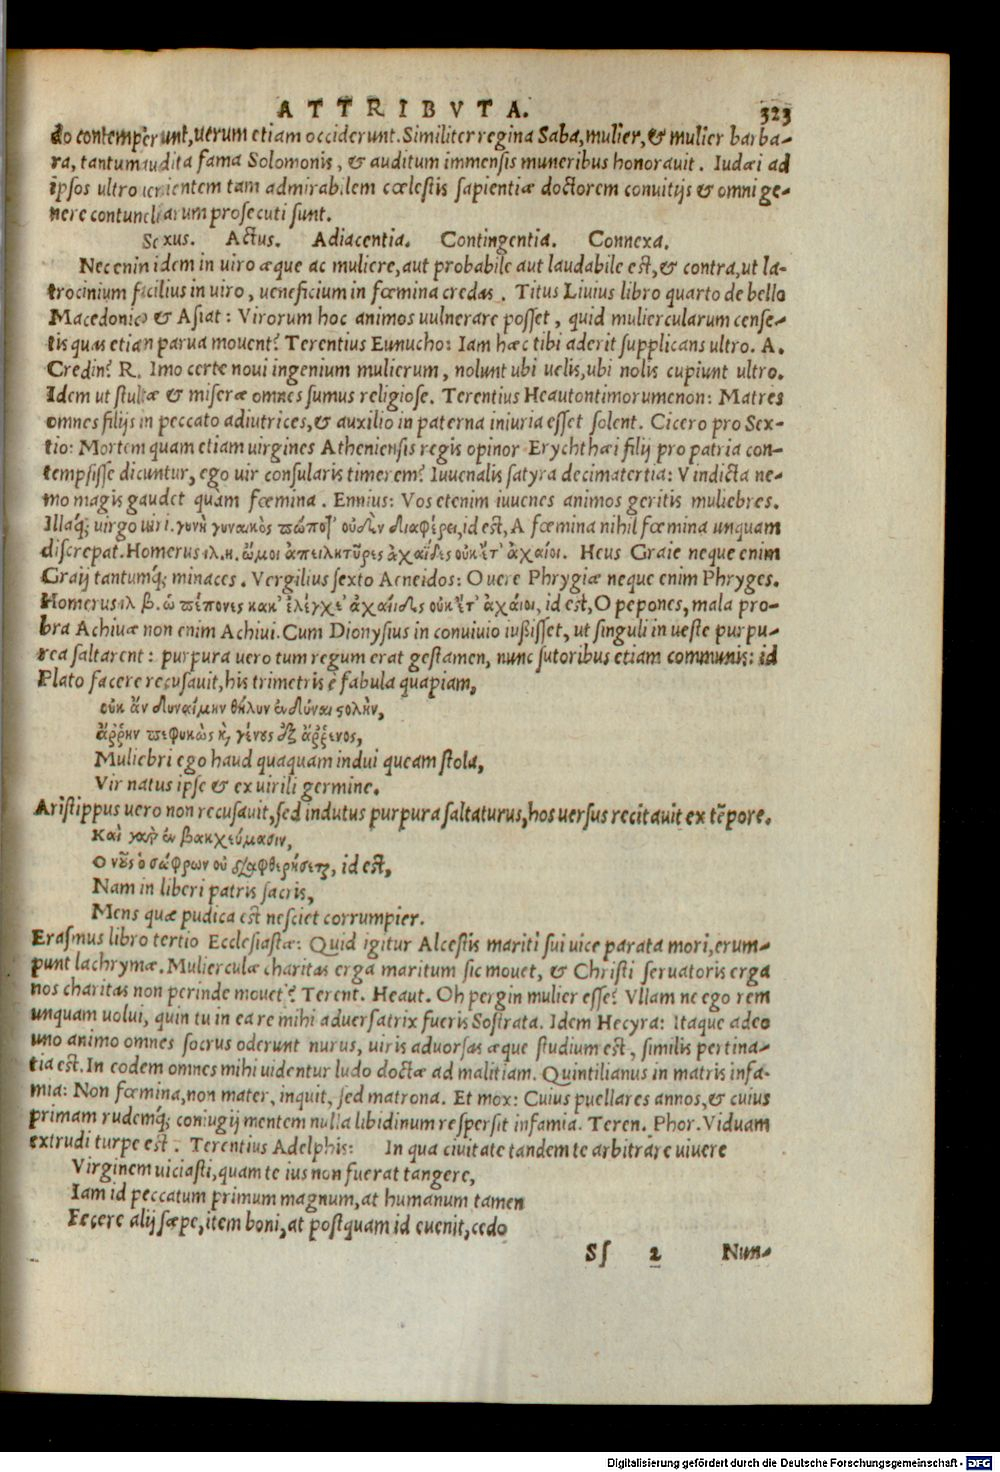 ATTRIBVTA. 323
do contemperunt, uerum etiam occiderunt. Similiter regina Saba, mulier, & mulier barba-
ra, tantum audita fama Solomonis, & auditum immensis muneribus honorauit. Iudæi ad
ipsos ultro uenientem tam admirabilem cœlestis sapientiæ doctorem conuitijs & omni ge-
nere contumeliarum prosecuti sunt.
Sexus. Actus. Adiacentia. Contingentia. Connexa.
Nec enim idem in uiro æque ac muliere, aut probabile aut laudabile est, & contra, ut la-
trocinium facilius in uiro, ueneficium in fœmina credas. Titus Liuius libro quarto de bello
Macedonico & Asiat: Virorum hoc animos uulnerare posset, quid muliercularum cense-
tis quas etian parua mouent? Terentius Eunucho: Iam hæc tibi aderit supplicans ultro. A.
Credin? R. Imo certe noui ingenium mulierum, nolunt ubi uelis, ubi nolis cupiunt ultro.
Idem ut stultæ & miseræ omnes sumus religiose. Terentius Heautontimorumenon: Matres
omnes filijs in peccato adiutrices, & auxilio in paterna iniuria esset solent. Cicero pro Sex-
tio: Mortem quam etiam uirgines Atheniensis regis opinor Erychthæi filij pro patria con-
tempsisse dicuntur, ego uir consularis timerem? Iuuenalis satyra decimatertia: Vindicta ne-
mo magis gaudet quam fœmina. Ennius: Vos etenim iuuenes animos geritis muliebres.
Illaq́; uirgo uiri. γυνὴ γυναικὸς πώποτ' οὐδὲν διαφέρει, id est, A fœmina nihil fœmina unquam
discrepat. Homerus ιλ. η. ὤμοι ἀπειλητῆρες ἀχαιΐδες οὐκ ἔτ' ἀχαιοί. Heus Graie neque enim
Graij tantumq́; minaces. Vergilius sexto Aeneidos: O uere Phrygiæ neque enim Phryges.
Homerus ιλ β. ὦ πέπονες κακ' ἐλέγχε' ἀχαιΐδες οὐκ ἔτ' ἀχαιοί, id est, O pepones, mala pro-
bra Achiuæ non enim Achiui. Cum Dionysius in conuiuio iußisset, ut singuli in ueste purpu-
rea saltarent: purpura uero tum regum erat gestamen, nunc sutoribus etiam communis: id
Plato facere recusauit, his trimetris è fabula quapiam,
οὐκ ἂν δυναίμην θῆλυν ἐνδῦναι στολὴν,
ἄῤῥην πεφυκὼς καὶ γένους ἐξ ἄῤῥενος,
Muliebri ego haud quaquam indui queam stola,
Vir natus ipse & ex uirili germine.
Aristippus uero non recusauit, sed indutus purpura saltaturus, hos uersus recitauit ex tēpore.
Καὶ γὰρ ἐν βακχεύμασιν,
Ο νοῦς ὁ σώφρων οὐ διαφθερήσεται, id est,
Nam in liberi patris sacris,
Mens quæ pudica est nesciet corrumpier.
Erasmus libro tertio Ecclesiastæ: Quid igitur Alcestis mariti sui uice parata mori, erum-
punt lachrymæ. Mulierculæ charitas erga maritum sic mouet, & Christi seruatoris erga
nos charitas non perinde mouet? Terent. Heaut. Oh pergin mulier esse? Vllam ne ego rem
unquam uolui, quin tu in ea re mihi aduersatrix fueris Sostrata. Idem Hecyra: Itaque adeo
uno animo omnes socrus oderunt nurus, uiris aduorsas æque studium est, similis pertina-
tia est. In eodem omnes mihi uidentur ludo doctæ ad malitiam. Quintilianus in matris infa-
mia: Non fœmina, non mater, inquit, sed matrona. Et mox: Cuius puellares annos, & cuius
primam rudemq́; coniugij mentem nulla libidinum respersit infamia. Teren. Phor. Viduam
extrudi turpe est. Terentius Adelphis: In qua ciuitate tandem te arbitrare uiuere
Virginem uiciasti, quam te ius non fuerat tangere,
Iam id peccatum primum magnum, at humanum tamen
Fecere alij sæpe, item boni, at postquam id euenit, cedo
Sſ 2 Nun-
Digitalisierung gefördert durch die Deutsche Forschungsgemeinschaft - DFG